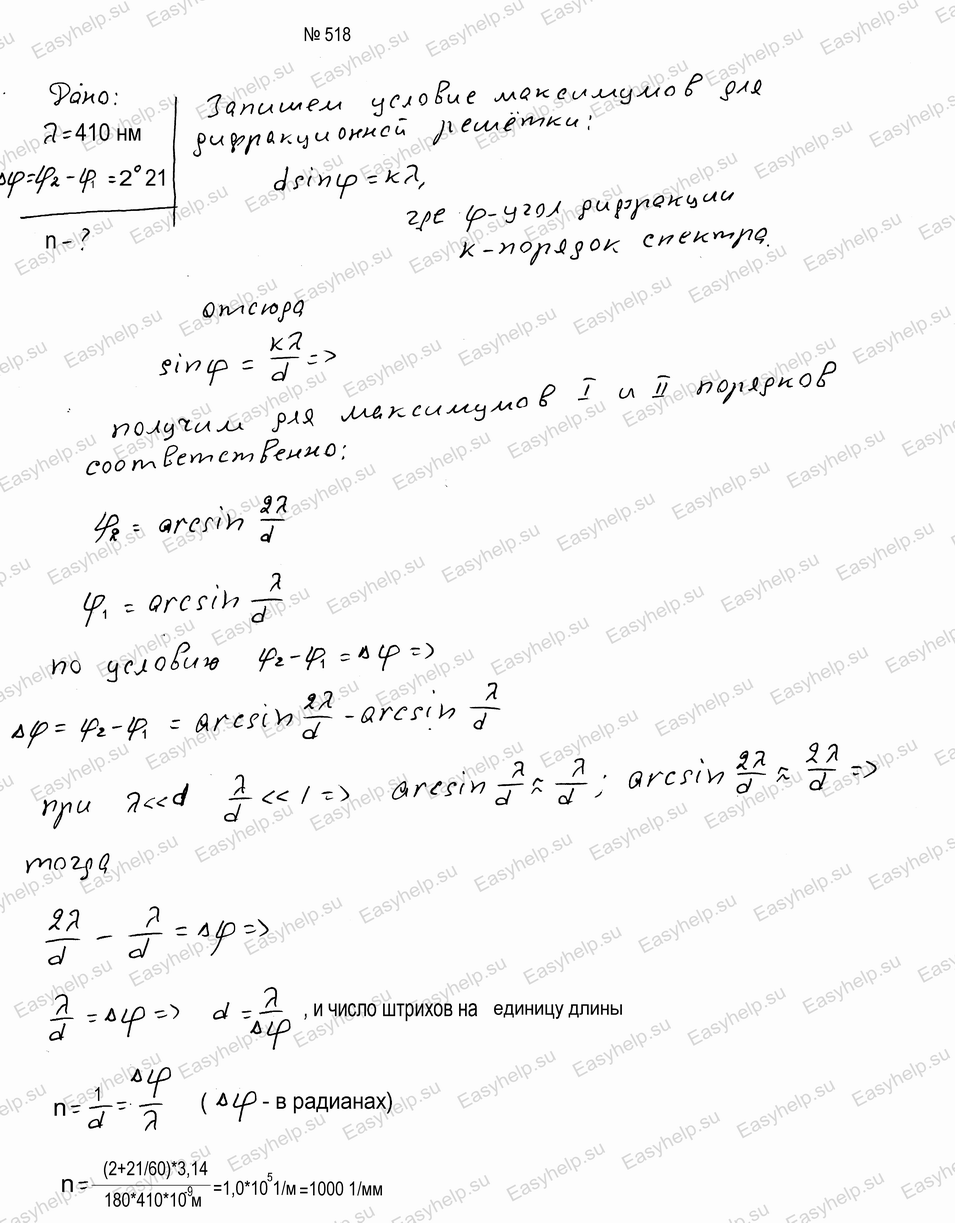 № 518
Дано:
λ = 410 нм
Δφ = φ₂ - φ₁ = 2° 21
n - ?
Запишем условие максимумов для
дифракционной решётки:
d sin φ = kλ,
где φ - угол дифракции
к - порядок спектра.
отсюда
sin φ = кλ/d =>
получим для максимумов I и II порядков
соответственно:
φ₂ = arcsin 2λ/d
φ₁ = arcsin λ/d
по условию φ₂ - φ₁ = Δφ =>
Δφ = φ₂ - φ₁ = arcsin 2λ/d - arcsin λ/d
при λ << d λ/d << 1 => arcsin λ/d ≈ λ/d ; arcsin 2λ/d ≈ 2λ/d =>
тогда
2λ/d - λ/d = Δφ =>
λ/d = Δφ => d = λ/Δφ , и число штрихов на единицу длины
n = 1/d = Δφ/λ ( Δφ - в радианах)
n = (2+21/60)*3,14 / 180*410*10⁻⁹м = 1,0*10⁵ 1/м = 1000 1/мм
Easyhelp.su